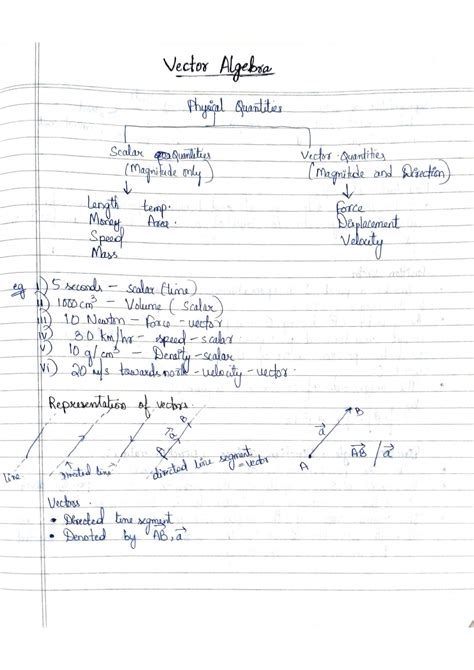 Vector Algebra
Physical Quantities
Scalar Quantities
(Magnitude only)
Vector Quantities
(Magnitude and Direction)
Length temp.
Money Area
Speed
Mass
Force
Displacement
Velocity
eg i) 5 seconds - scalar (time)
ii) 1000 cm³ - Volume (scalar)
iii) 10 Newton - Force - vector
iv) 30 km/hr - speed - scalar
v) 10 g/cm³ - Density - scalar
vi) 20 m/s towards north - velocity - vector.
Representation of vectors
line
directed line
A a⃗ B
directed line segment = vector
A a⃗ B
AB⃗ / a⃗
Vectors.
• Directed line segment
• Denoted by AB⃗, a⃗